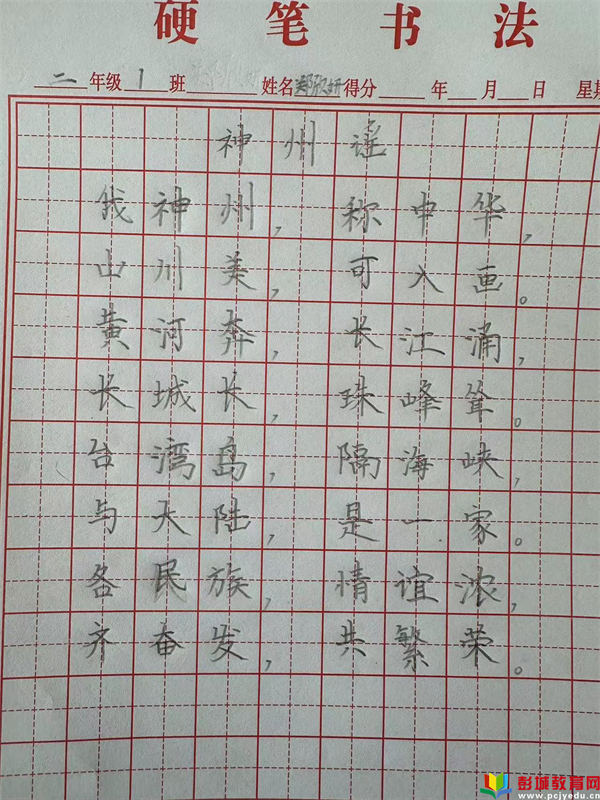 硬笔书法
二年级1班 姓名郑欣妍得分 年 月 日 星期
神州谣
我神州，称中华，
山川美，可入画。
黄河奔，长江涌，
长城长，珠峰耸。
台湾岛，隔海峡，
与大陆，是一家。
各民族，情谊浓，
齐奋发，共繁荣。
彭城教育网
www.pcjyedu.cn